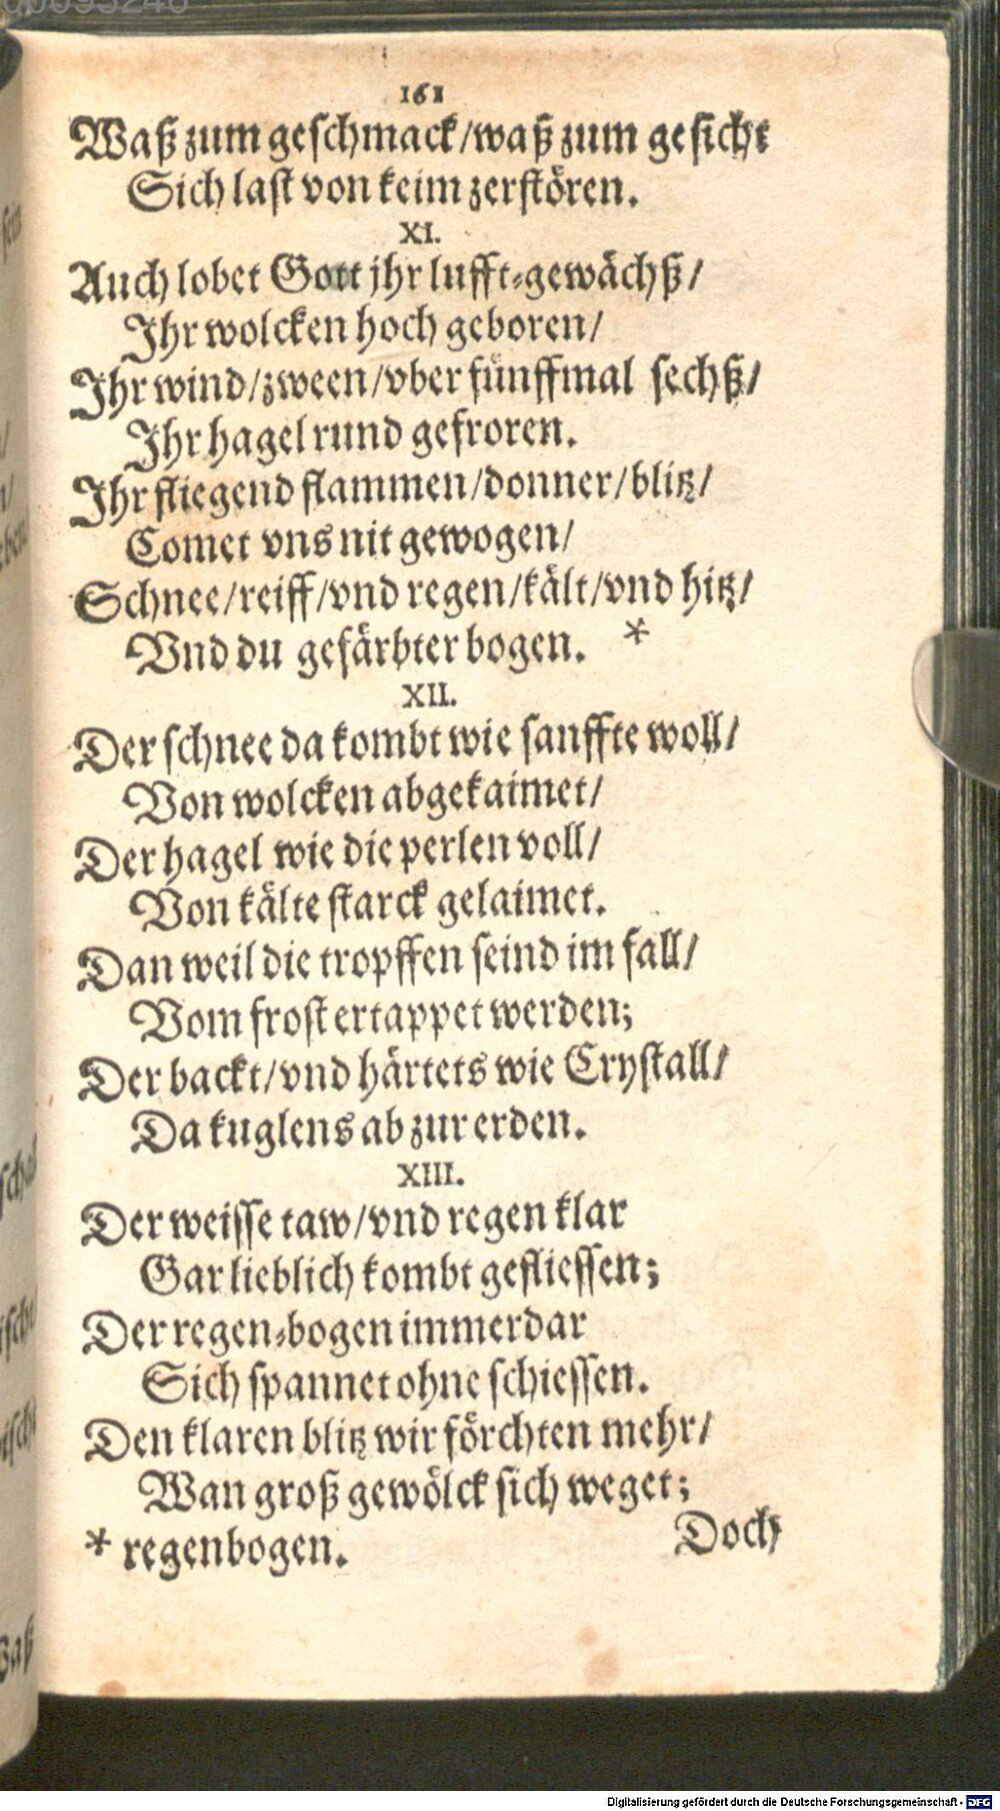 161
Waß zum geschmack/waß zum gesicht
Sich last von keim zerstören.
XI.
Auch lobet Gott jhr lufft-gewächß/
Ihr wolcken hoch geboren/
Ihr wind/zween/vber fünffmal sechß/
Ihr hagel rund gefroren.
Ihr fliegend flammen/donner/blitz/
Comet vns nit gewogen/
Schnee/reiff/vnd regen/kält/vnd hitz/
Vnd du gefärbter bogen. *
XII.
Der schnee da kombt wie sanffte woll/
Von wolcken abgekaimet/
Der hagel wie die perlen voll/
Von kälte starck gelaimet.
Dan weil die tropffen seind im fall/
Vom frost ertappet werden;
Der backt/vnd härtets wie Crystall/
Da kuglens ab zur erden.
XIII.
Der weisse taw/vnd regen klar
Gar lieblich kombt gefliessen;
Der regen-bogen immerdar
Sich spannet ohne schiessen.
Den klaren blitz wir förchten mehr/
Wan groß gewölck sich weget;
* regenbogen. Doch
Digitalisierung gefördert durch die Deutsche Forschungsgemeinschaft - DFG